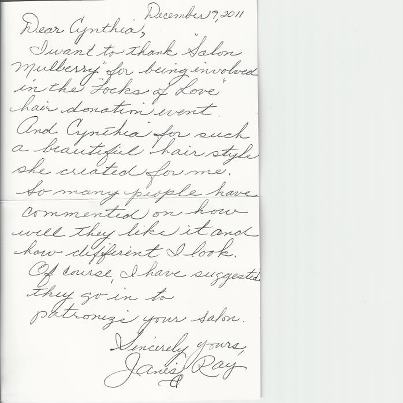 December 9, 2011
Dear Cynthia,
I want to thank "Salon
Mulberry" for being involved
in the "Locks of Love"
hair donation event.
And Cynthia for such
a beautiful hair style
she created for me.
So many people have
commented on how
well they like it and
how different I look.
Of course, I have suggested
they go in to
patronize your salon.
Sincerely yours,
Janis Ray